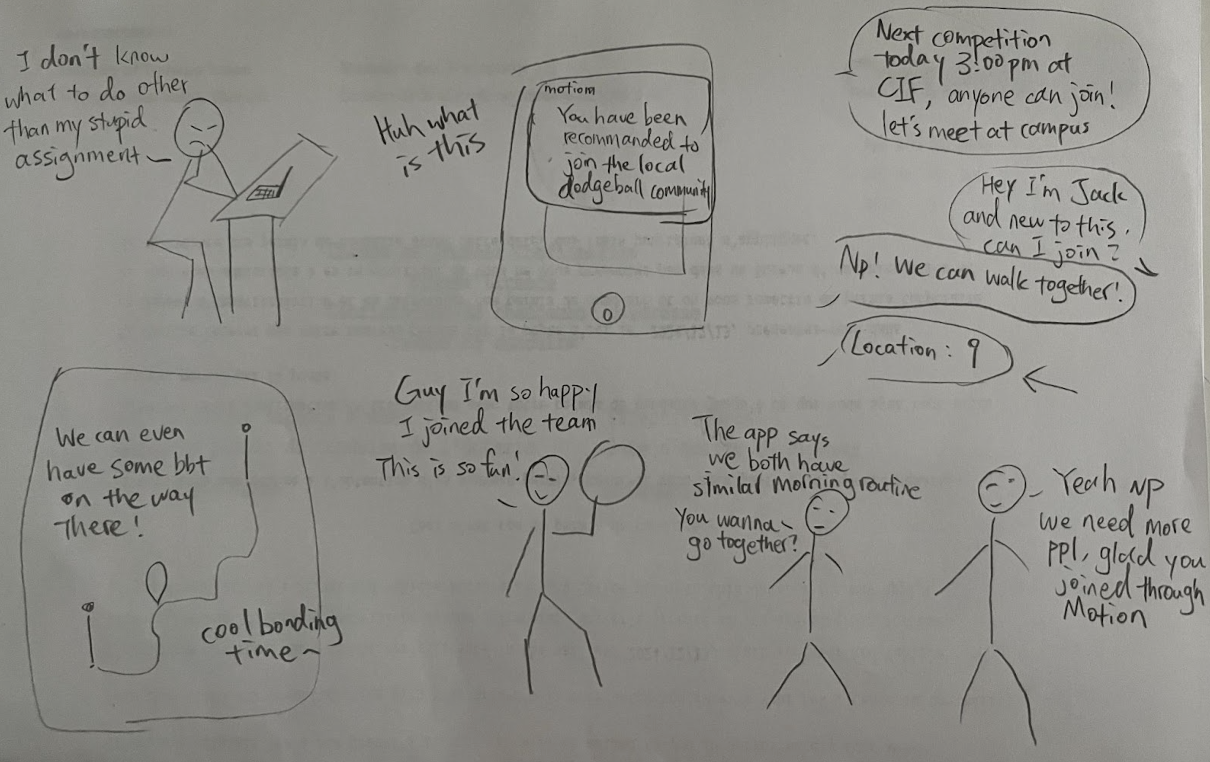 I don't know
what to do other
than my stupid
assignment
Huh what
is this
motion
You have been
recommanded to
join the local
dodgeball community
Next competition
today 3:00pm at
CIF, anyone can join!
let's meet at campus
Hey I'm Jack
and new to this.
can I join?
Np! We can walk together!
Location:
We can even
have some bbt
on the way
There!
cool bonding
time~
Guy I'm so happy
I joined the team
This is so fun!
The app says
we both have
similar morning routine
You wanna
go together?
Yeah NP
we need more
ppl, glad you
joined through
Motion